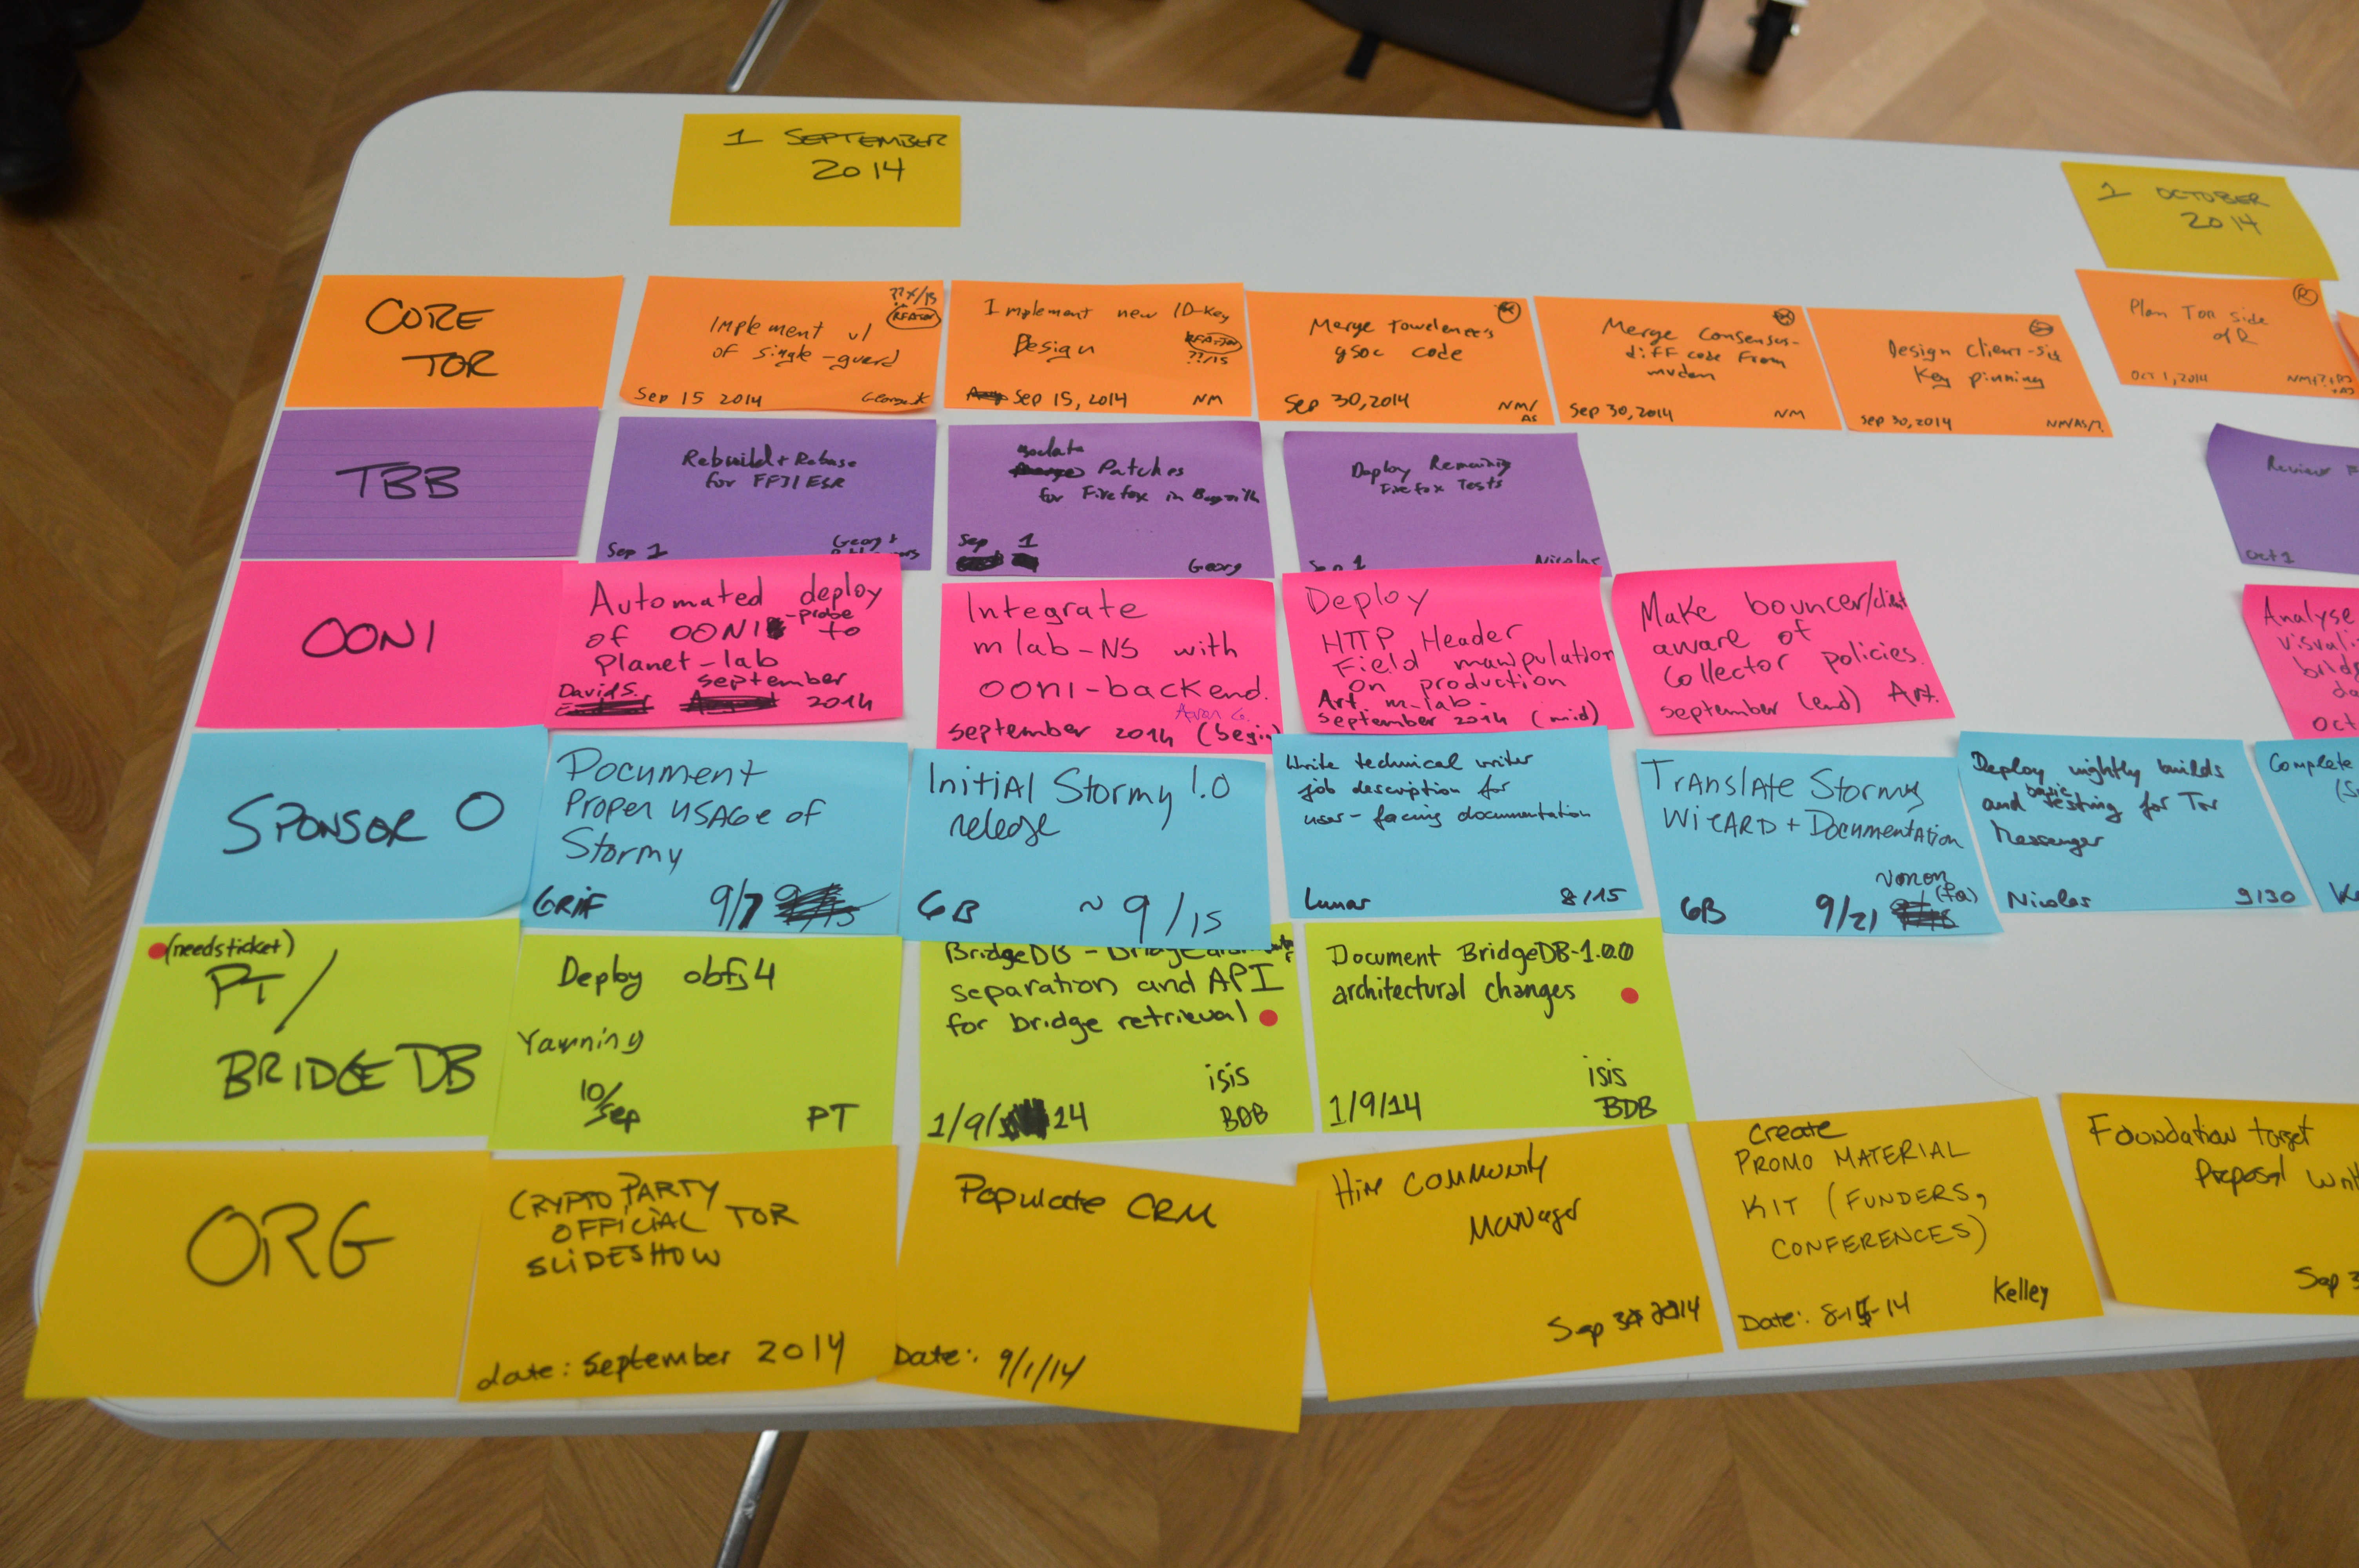 1 SEPTEMBER
2014
1 OCTOBER
2014
CORE
TOR
??/15
Implement v1
of single-guard
Sep 15 2014
George K
Implement new ID-Key
Design
??/15
Sep 15, 2014
NM
Merge
gsoc code
Sep 30, 2014
NM/
AS
Merge consensus-
diff code from
mvdan
Sep 30, 2014
NM
Design Client-side
Key pinning
Sep 30, 2014
NM/AS/?
Plan Tor side
of R
Oct 1, 2014
TBB
Rebuild + Rebase
for FF31ESR
Sep 1
Georg +
Isolate
Patches
for Firefox in
Sep 1
Georg
Deploy Remaining
Firefox Tests
Sep 1
Nicolas
Review
Oct 1
OONI
Automated deploy
of OONI-probe to
planet-lab
David S.
september
2014
Integrate
mlab-NS with
OONI-backend.
september 2014 (begin)
Deploy
HTTP Header
Field manipulation
on production
Art. m-lab.
september 2014 (mid)
Make bouncer/client
aware of
collector policies.
september (end) Art.
Analyse
Oct
SPONSOR O
Document
Proper usage of
Stormy
GRIF
9/7
Initial Stormy 1.0
release
GB
~ 9/15
Write technical writer
job description for
user-facing documentation
Lunar
8/15
Translate Stormy
Wizard + Documentation
GB
9/21
(fa)
Deploy nightly builds
and basic testing for Tor
Messenger
Nicolas
9/30
Complete
(needs ticket)
PT/
BRIDGE DB
Deploy obfs4
Yawning
10/
Sep
PT
BridgeDB -
separation and API
for bridge retrieval
isis
1/9/14
BDB
Document BridgeDB-1.0.0
architectural changes
isis
1/9/14
BDB
ORG
CRYPTO PARTY
OFFICIAL TOR
SLIDESHOW
date: September 2014
Populate CRM
Date: 9/1/14
Hire Community
Manager
Sep 2014
Create
PROMO MATERIAL
KIT (FUNDERS,
CONFERENCES)
Kelley
Date: 8-15-14
Foundation target
Proposal
Sep